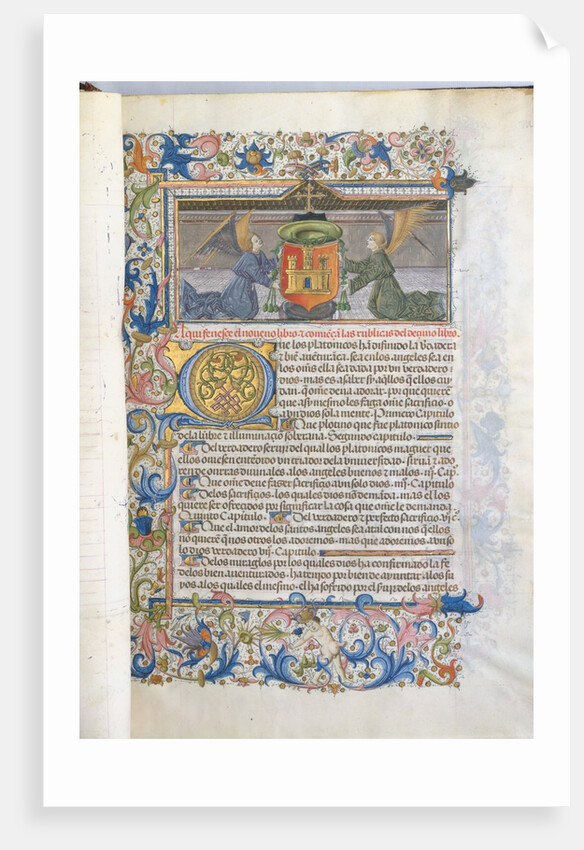 Aqui fenesçe el noueno libro · τ comiēçā las rubricas del deçimo libro.
Que los platonicos hā disinido la v̄dadera
τ biē auēturāça · sea en los angeles sea en
los om̄s ella sea dada por vn verdadero
dios · mas es a saber sy aq̄llos q̄ ellos cuy
dan · q̄ om̄e deua adorar · por que quierē
que asy mesmo les faga om̄e sacrifiçio · o
a vn dios sola mente · Primero Capitulo
Que plotino que fue platonico sintio
de la lūbre τ illuminaçiō soberana · Segundo capitulo ·
Del verdadero seruyr del qual los platonicos maguer que
ellos ouiesen entēdido vn criador de la vniuersidad · siruiā τ ado
ren de onrras diuinales a los angeles buenos τ malos · iij · Cap̄
Que om̄e deue fazer sacrifiçio a vn solo dios · iiij · Capitulo
De los sacrifiçios · los quales dios nō demāda · mas el los
quiere ser ofreçidos por significar la cosa que om̄e le demanda ·
Quinto Capitulo · Del verdadero τ perfecto sacrifiçio · vj · c̄
Que el amor de los santos angeles sea atal con nos q̄ ellos
nō quierē q̄ nos otros los adoremos · mas que adoremos a vn so
lo dios verdadero · vij · Capitulo ·
De los miraglos por los quales dios ha confirmado la fe
de los bien auenturados · ha tenido por bien de ayuntar a los su
yos · a los quales el mesmo · el ha sofrido por el seruyr de los angeles